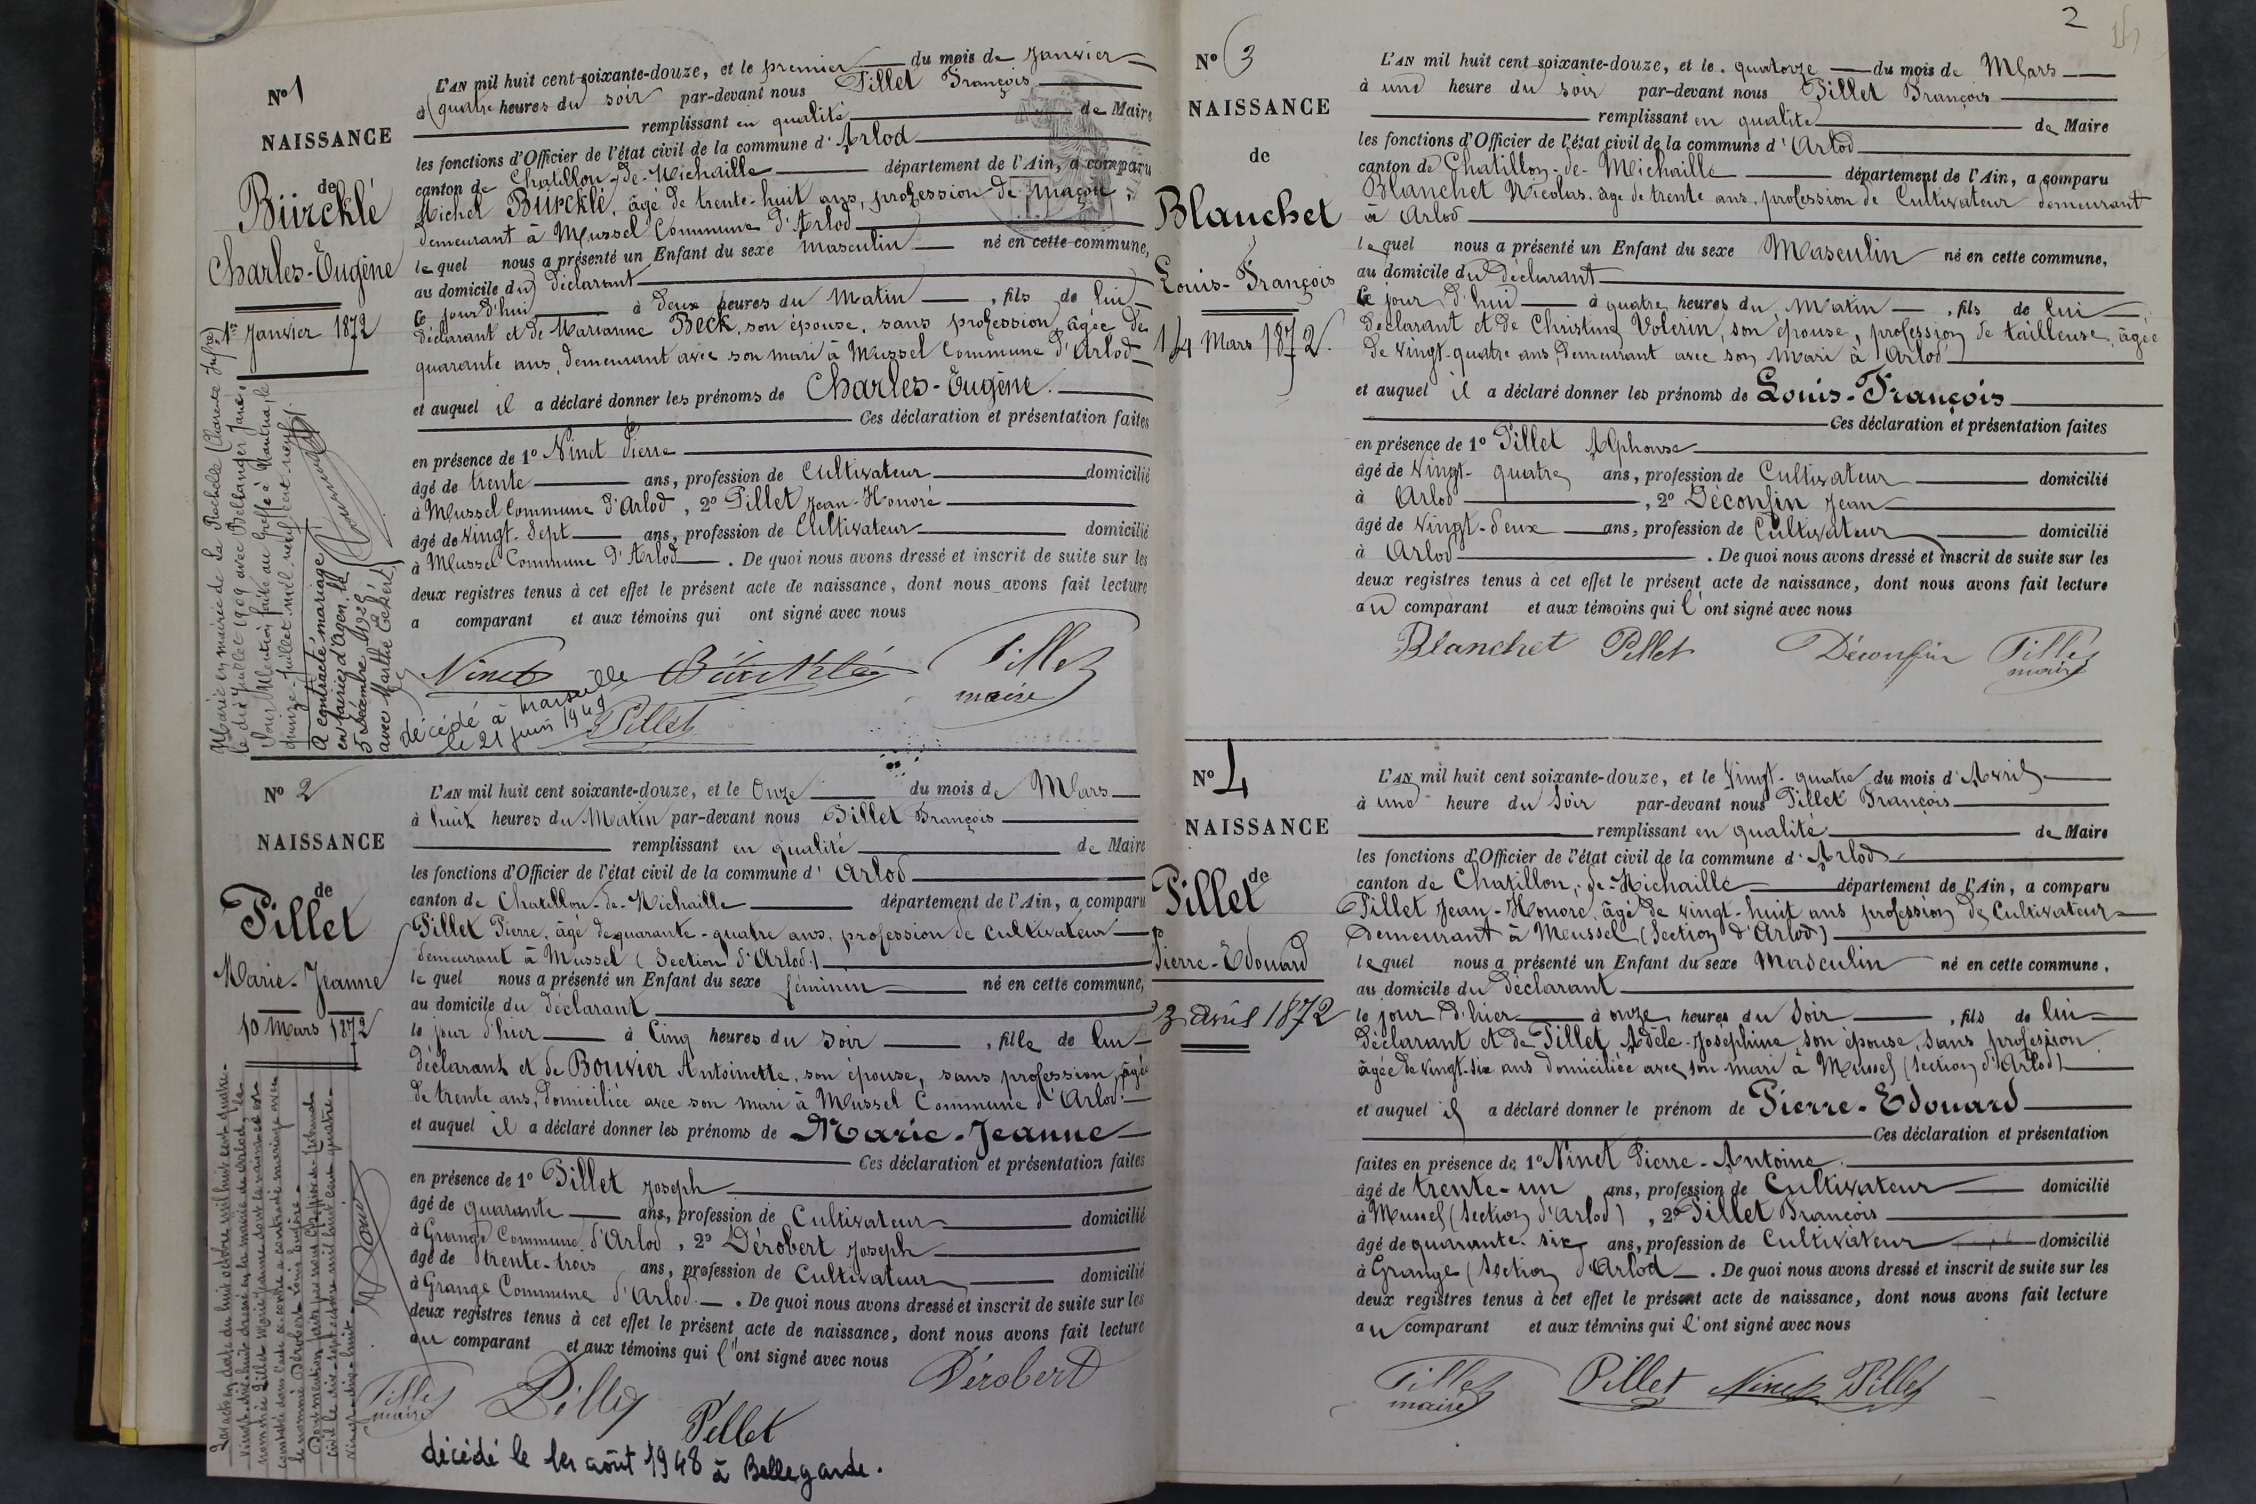 Nº 1
NAISSANCE
de
Bürcklé
Charles-Eugène
1er Janvier 1872
L'AN mil huit cent soixante-douze, et le premier du mois de Janvier
à quatre heures du soir par-devant nous Pillet François
remplissant en qualité de Maire
les fonctions d'Officier de l'état civil de la commune d'Arlod
canton de Chatillon-de-Michaille département de l'Ain, a comparu
Michel Bürcklé, âgé de trente-huit ans, profession de maçon,
demeurant à Mussel Commune d'Arlod
lequel nous a présenté un Enfant du sexe masculin né en cette commune,
au domicile du déclarant
ce jour d'hui à deux heures du Matin, fils de lui
déclarant et de Marianne Beck, son épouse, sans profession, âgée de
quarante ans, demeurant avec son mari à Mussel Commune d'Arlod
et auquel il a déclaré donner les prénoms de Charles-Eugène.
Ces déclaration et présentation faites
en présence de 1º Ninet Pierre
âgé de trente ans, profession de Cultivateur domicilié
à Mussel Commune d'Arlod, 2º Pillet Jean-Honoré
âgé de vingt-sept ans, profession de Cultivateur domicilié
à Mussel Commune d'Arlod. De quoi nous avons dressé et inscrit de suite sur les
deux registres tenus à cet effet le présent acte de naissance, dont nous avons fait lecture
a comparant et aux témoins qui ont signé avec nous
Ninet Bürcklé Pillet
maire
Pillet
décédé à Marseille
le 21 juin 1949
Marié en mairie de La Rochelle (Charente Infre)
le dix Juillet 1909 avec Bellanger Jane.
Pour Mention faite au Greffe à Nantua, le
quinze Juillet mil neuf cent neuf.
A contracté mariage
en mairie d'Agen, le
5 décembre 1922
avec Marthe
Nº 2
NAISSANCE
de
Pillet
Marie-Jeanne
10 Mars 1872
L'AN mil huit cent soixante-douze, et le Onze du mois de Mars
à huit heures du Matin par-devant nous Pillet François
remplissant en qualité de Maire
les fonctions d'Officier de l'état civil de la commune d'Arlod
canton de Chatillon-de-Michaille département de l'Ain, a comparu
Pillet Pierre, âgé de quarante-quatre ans, profession de cultivateur
demeurant à Mussel (Section d'Arlod)
lequel nous a présenté un Enfant du sexe féminin né en cette commune,
au domicile du déclarant
le jour d'hier à Cinq heures du soir, fille de lui
déclarant et de Bouvier Antoinette, son épouse, sans profession, âgée
de trente ans, domiciliée avec son mari à Mussel Commune d'Arlod.
et auquel il a déclaré donner les prénoms de Marie-Jeanne
Ces déclaration et présentation faites
en présence de 1º Pillet Joseph
âgé de quarante ans, profession de Cultivateur domicilié
à Grange Commune d'Arlod, 2º Dérobert Joseph
âgé de trente-trois ans, profession de Cultivateur domicilié
à Grange Commune d'Arlod. De quoi nous avons dressé et inscrit de suite sur les
deux registres tenus à cet effet le présent acte de naissance, dont nous avons fait lecture
au comparant et aux témoins qui l'ont signé avec nous
Pillet
maire
Pillet Pellet Dérobert
décédé le 1er août 1948 à Bellegarde.
2
Nº 3
NAISSANCE
de
Blanchet
Louis-François
14 Mars 1872.
L'AN mil huit cent soixante-douze, et le quatorze du mois de Mars
à une heure du soir par-devant nous Pillet François
remplissant en qualité de Maire
les fonctions d'Officier de l'état civil de la commune d'Arlod
canton de Chatillon-de-Michaille département de l'Ain, a comparu
Blanchet Nicolas, âgé de trente ans, profession de Cultivateur demeurant
à Arlod
lequel nous a présenté un Enfant du sexe Masculin né en cette commune,
au domicile du déclarant
Ce jour d'hui à quatre heures du Matin, fils de lui
déclarant et de Christine Volerin, son épouse, profession de tailleuse, âgée
de vingt-quatre ans, demeurant avec son mari à Arlod
et auquel il a déclaré donner les prénoms de Louis-François
Ces déclaration et présentation faites
en présence de 1º Pillet Alphonse
âgé de vingt-quatre ans, profession de Cultivateur domicilié
à Arlod, 2º Déconfin Jean
âgé de vingt-deux ans, profession de Cultivateur domicilié
à Arlod. De quoi nous avons dressé et inscrit de suite sur les
deux registres tenus à cet effet le présent acte de naissance, dont nous avons fait lecture
au comparant et aux témoins qui l'ont signé avec nous
Blanchet Pellet Déconfin Pillet
maire
Nº 4
NAISSANCE
de
Pillet
Pierre-Edouard
3 avril 1872
L'AN mil huit cent soixante-douze, et le Vingt-quatre du mois d'Avril
à une heure du Soir par-devant nous Pillet François
remplissant en qualité de Maire
les fonctions d'Officier de l'état civil de la commune d'Arlod
canton de Chatillon-de-Michaille département de l'Ain, a comparu
Pillet Jean-Honoré, âgé de vingt-huit ans profession de Cultivateur
Demeurant à Meussel (Section d'Arlod)
lequel nous a présenté un Enfant du sexe Masculin né en cette commune,
au domicile du déclarant
le jour d'hier à onze heures du Soir, fils de lui
déclarant et de Pillet Adèle-Joséphine, son épouse, sans profession
âgée de vingt-six ans domiciliée avec son mari à Mussel (section d'Arlod)
et auquel il a déclaré donner le prénom de Pierre-Edouard
Ces déclaration et présentation
faites en présence de 1º Ninet Pierre-Antoine
âgé de trente-un ans, profession de Cultivateur domicilié
à Mussel (section d'Arlod), 2º Pillet François
âgé de quarante-six ans, profession de Cultivateur domicilié
à Grange (Section d'Arlod. De quoi nous avons dressé et inscrit de suite sur les
deux registres tenus à cet effet le présent acte de naissance, dont nous avons fait lecture
au comparant et aux témoins qui l'ont signé avec nous
Pillet
maire
Pillet Ninet Pillet